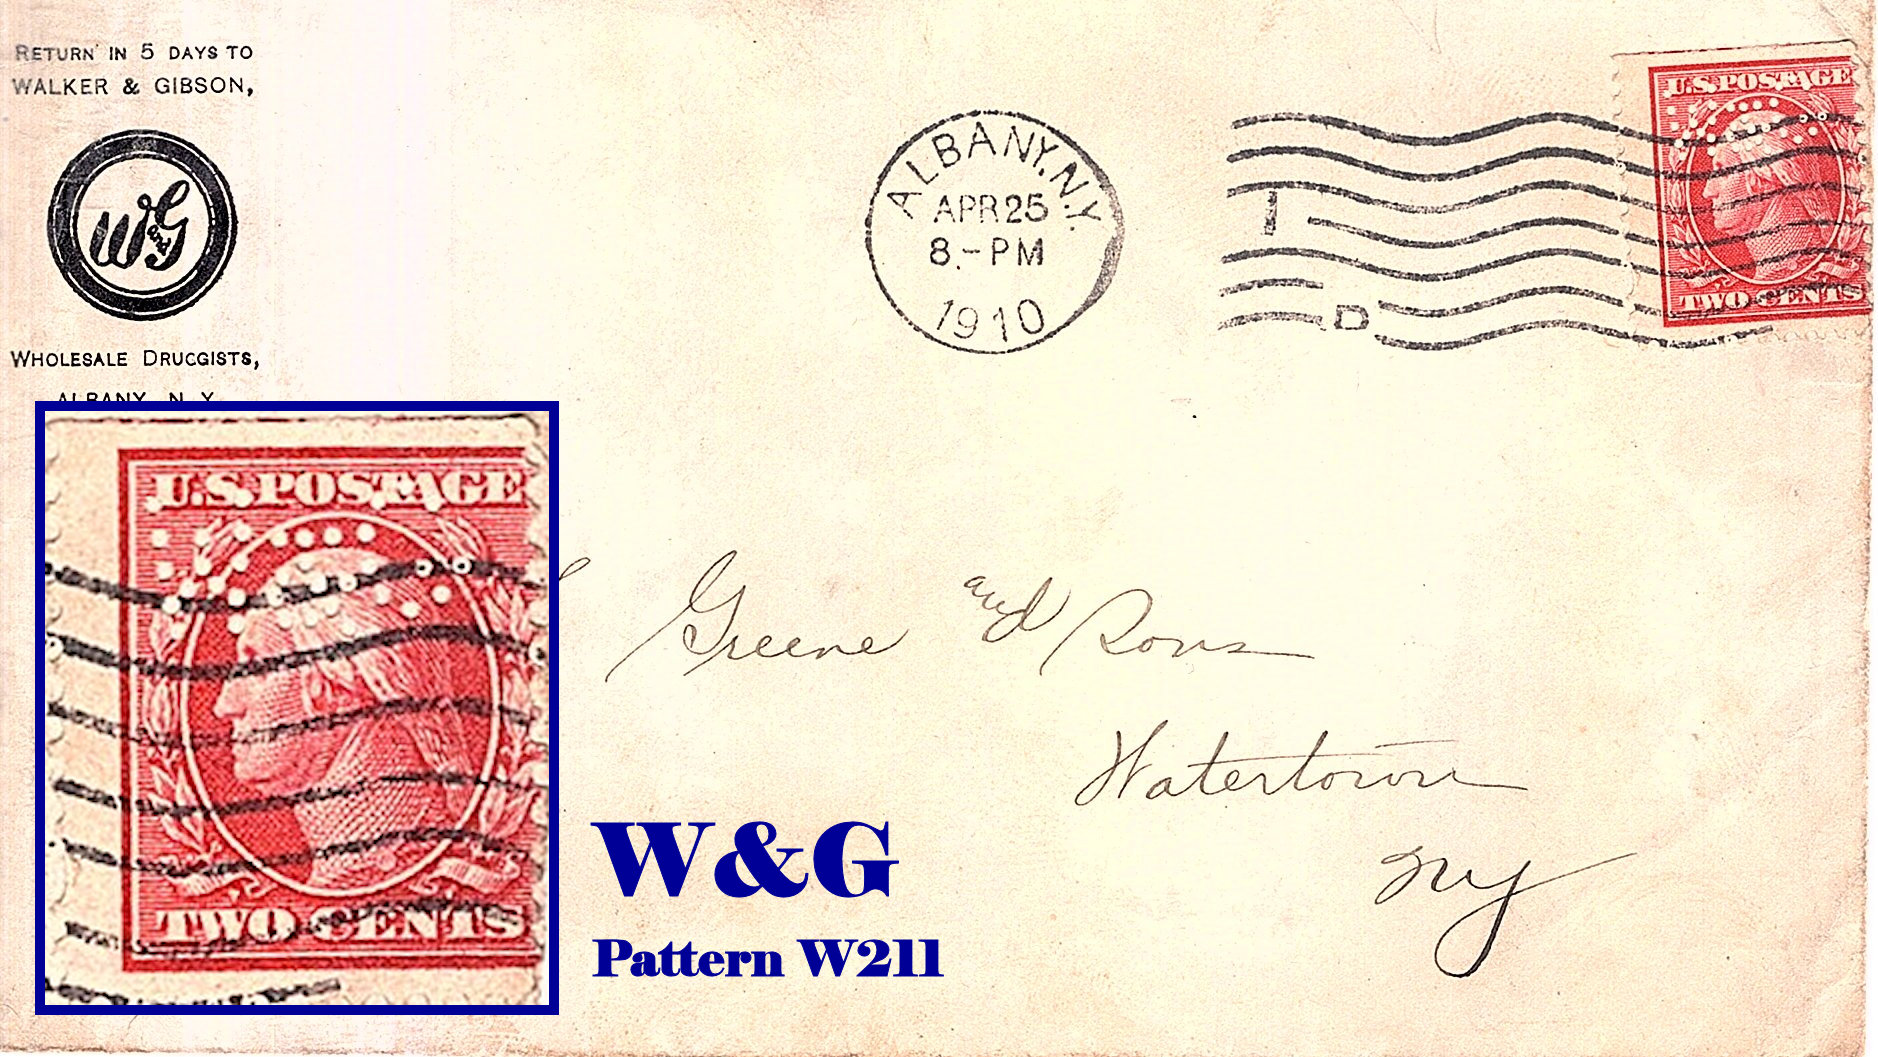 RETURN IN 5 DAYS TO
WALKER & GIBSON,
W and G
WHOLESALE DRUGGISTS,
ALBANY, N. Y.
ALBANY, N.Y.
APR 25
8 - PM
1910
I
D
U.S. POSTAGE
TWO CENTS
Greene and Sons
Watertown
NY
U.S. POSTAGE
TWO CENTS
W&G
Pattern W211